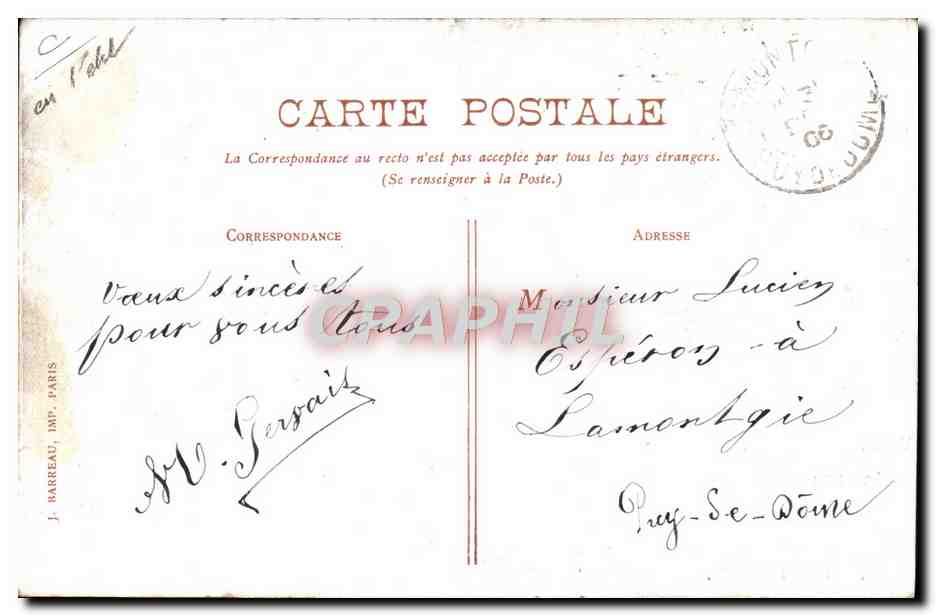 en l'état
CARTE POSTALE
La Correspondance au recto n'est pas acceptée par tous les pays étrangers.
(Se renseigner à la Poste.)
PUY DE DOME
06
CORRESPONDANCE
Vœux sincères
pour vous tous
M. Gervais
ADRESSE
Monsieur Lucien
Espéron à
Lamontgie
Puy-de-Dôme
J. BARREAU, IMP. PARIS
CPAPHIL